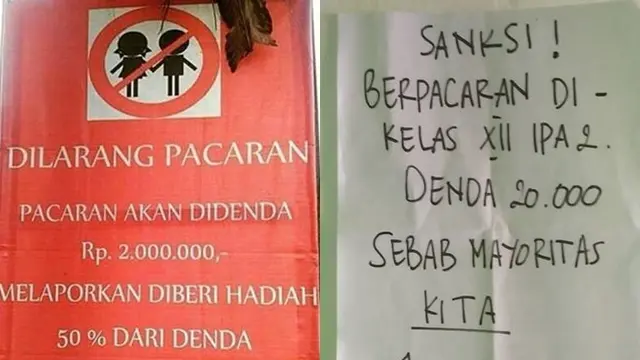 DILARANG PACARAN
PACARAN AKAN DIDENDA
Rp. 2.000.000,-
MELAPORKAN DIBERI HADIAH
50 % DARI DENDA
SANKSI !
BERPACARAN DI -
KELAS XII IPA 2.
DENDA 20.000
SEBAB MAYORITAS
KITA